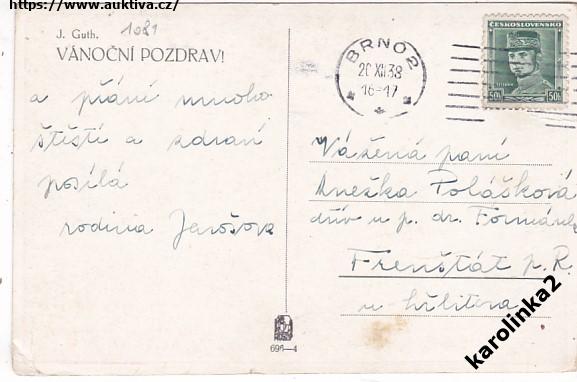 https://www.auktiva.cz/
J. Guth. 1081
VÁNOČNÍ POZDRAV!
a přání mnoho
štěstí a zdraví
posílá
rodina Jarošova
BRNO 2
20 XII 38
16-17
ČESKOSLOVENSKO
50h 50h
Vážená paní
Anežka Polášková
dřív u p. dr. Formánek
Frenštát p. R.
u hřbitova
694-4
karolinka2